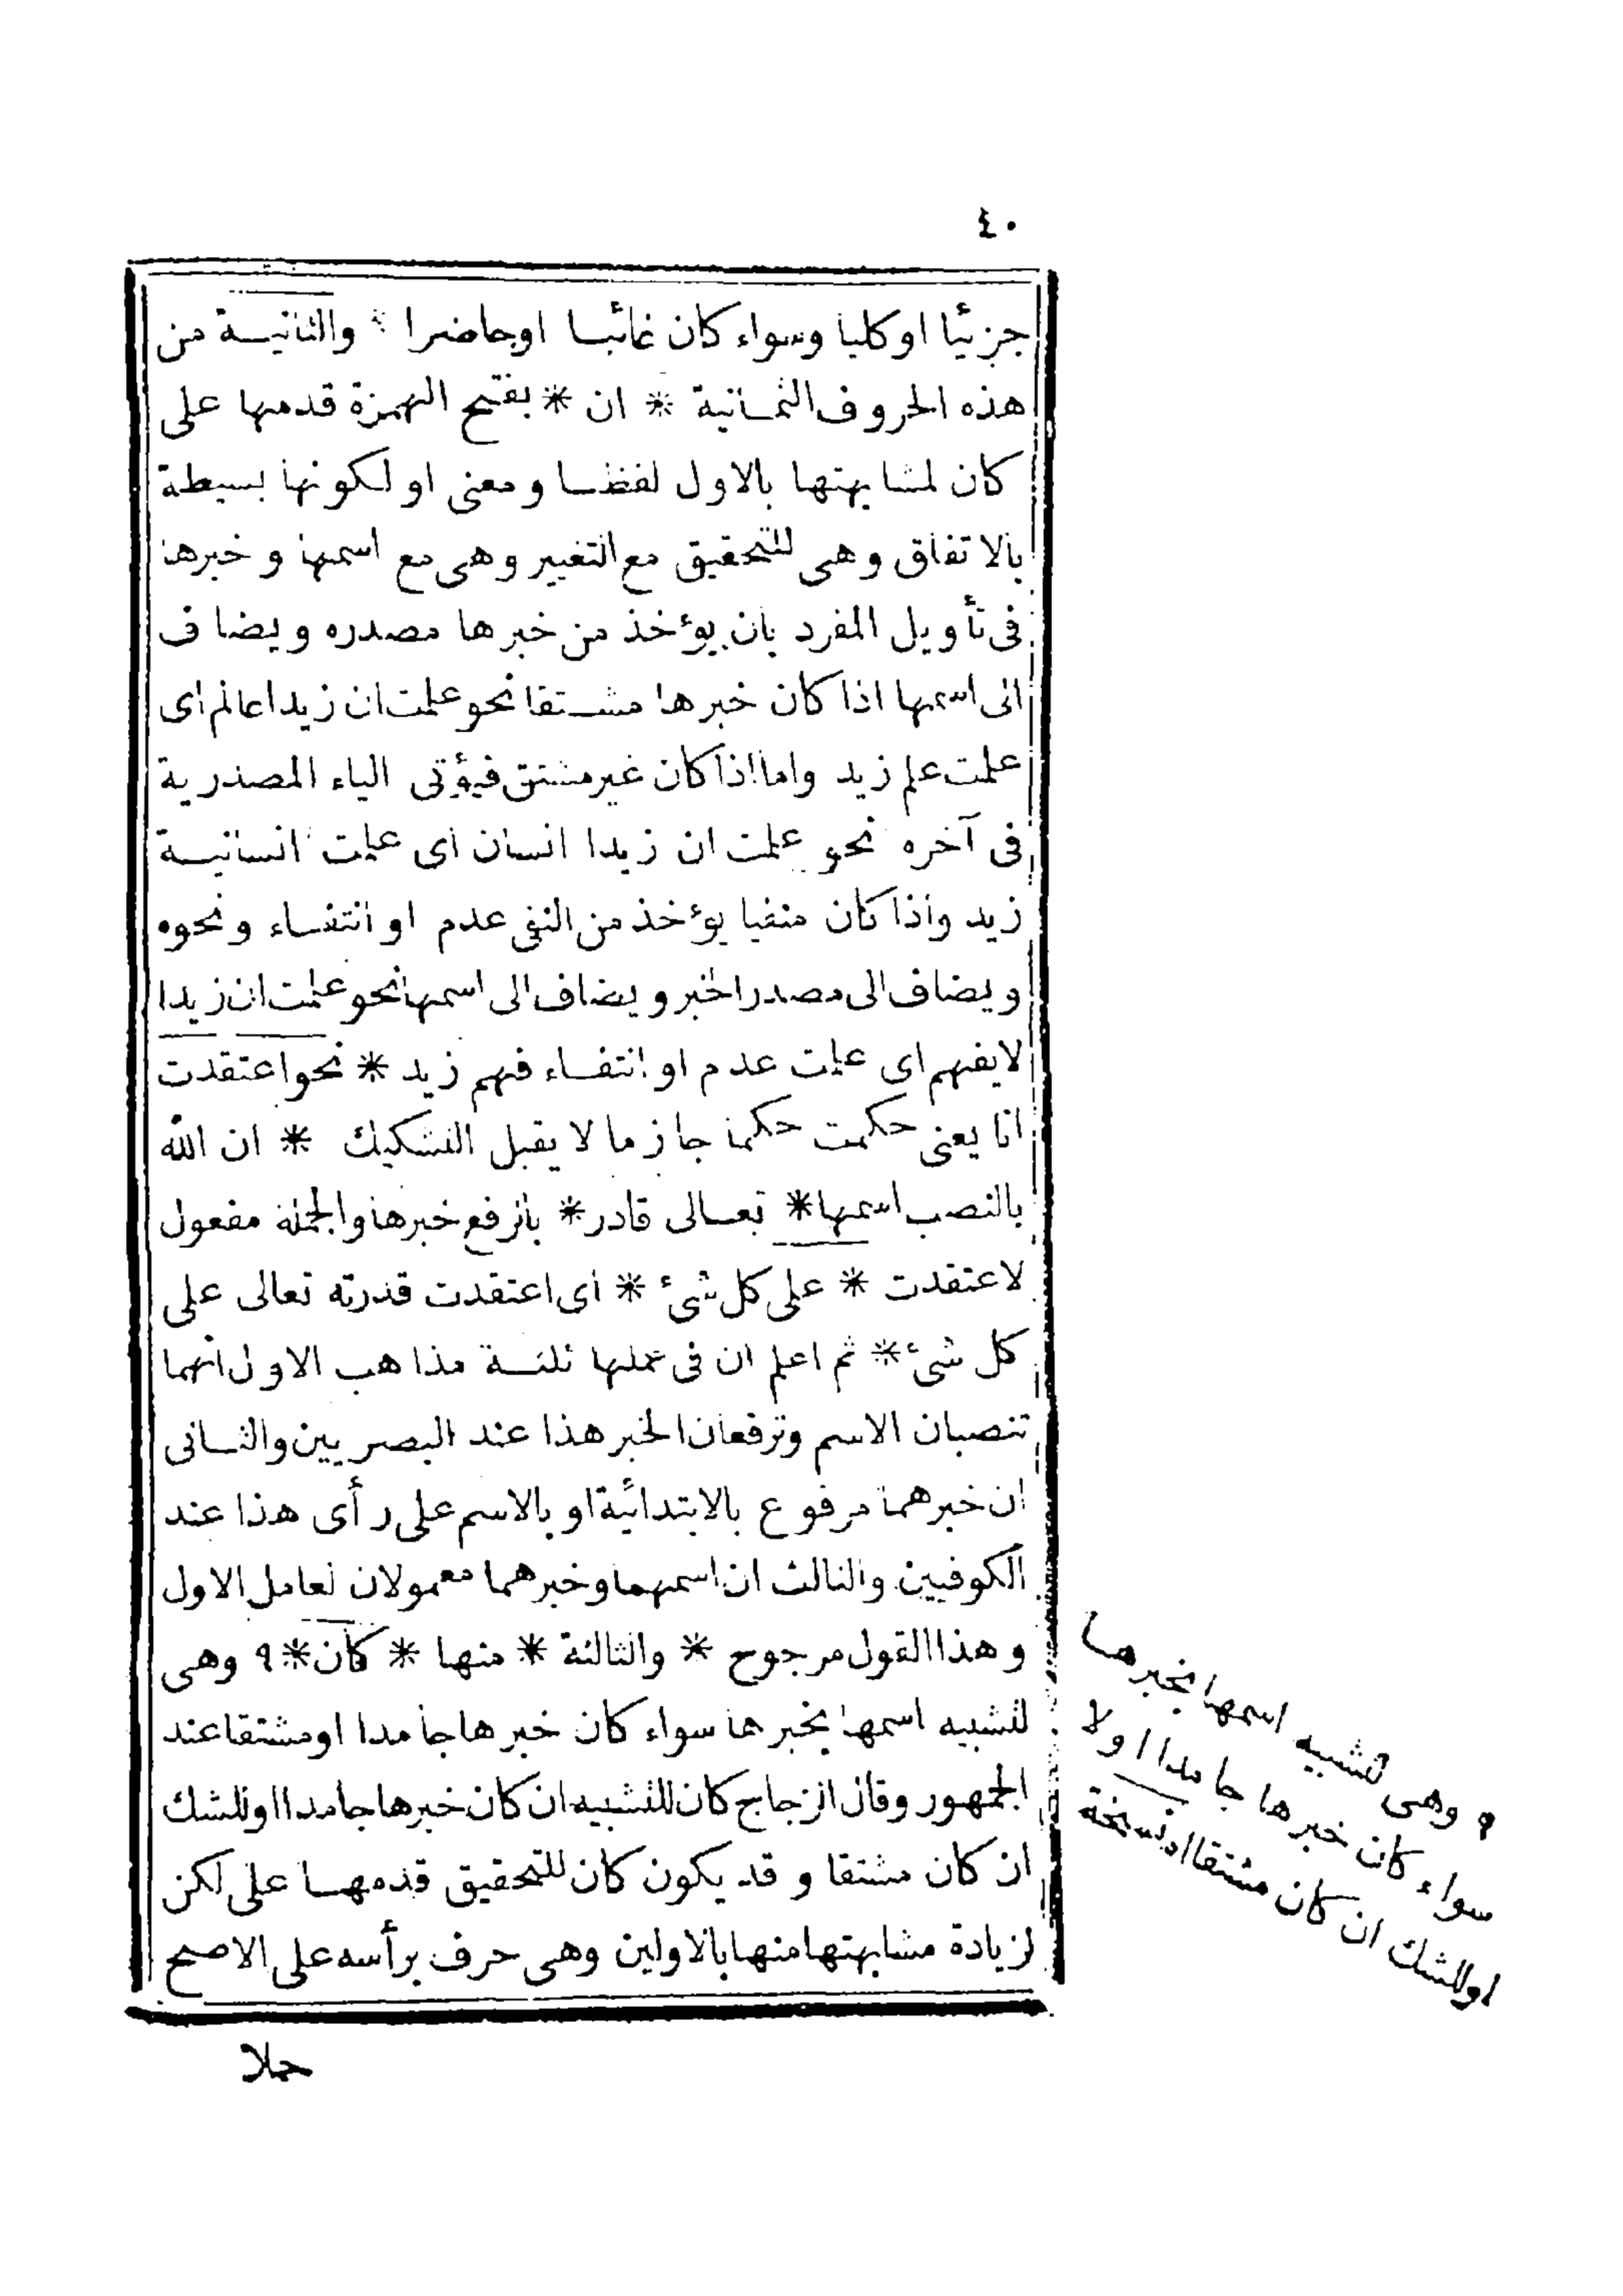 ٤٠
جزئيا اوكليا وسواء كان غائبا اوحاضرا والثانية من
هذه الحروف الثمانية * ان * بفتح الهمزة قدمها على
كان لمشابهتها بالاول لفظا ومعنى او لكونها بسيطة
بالاتفاق وهى للتحقيق مع التغيير وهى مع اسمها وخبرها
فى تأويل المفرد بان يؤخذ من خبرها مصدره ويضاف
الى اسمها اذا كان خبرها مشتقا نحو علمت ان زيدا عالم اى
علمت علم زيد واما اذا كان غير مشتق فيؤتى الياء المصدرية
فى آخره نحو علمت ان زيدا انسان اى علمت انسانية
زيد واذا كان منفيا يؤخذ من النفى عدم او انتفاء ونحوه
ويضاف الى مصدر الخبر ويضاف الى اسمها نحو علمت ان زيدا
لايفهم اى علمت عدم او انتفاء فهم زيد * نحو اعتقدت
انا يعنى حكمت حكما جازما لا يقبل التشكيك * ان الله
بالنصب اسمها * تعالى قادر * بالرفع خبرها والجملة مفعول
لاعتقدت * على كل شىء * اى اعتقدت قدرته تعالى على
كل شىء * ثم اعلم ان فى عملها ثلثة مذاهب الاول انهما
تنصبان الاسم وترفعان الخبر هذا عند البصريين والثانى
ان خبرهما مرفوع بالابتدائية او بالاسم على رأى هذا عند
الكوفيين والثالث ان اسمهما وخبرهما معمولان لعامل الاول
وهذا القول مرجوح * والثالثة * منها * كأن * ٩ وهى
لتشبيه اسمها بخبرها سواء كان خبرها جامدا اومشتقا عند
الجمهور وقال الزجاج كان للتشبيه ان كان خبرها جامدا اوللشك
ان كان مشتقا وقد يكون كان للتحقيق قدمها على لكن
لزيادة مشابهتها منها بالاولين وهى حرف برأسه على الاصح
حملا
٩ وهى لتشبيه اسمها بخبرها
سواء كان خبرها جامدا اولا
اوللشك ان كان مشتقا نسخة